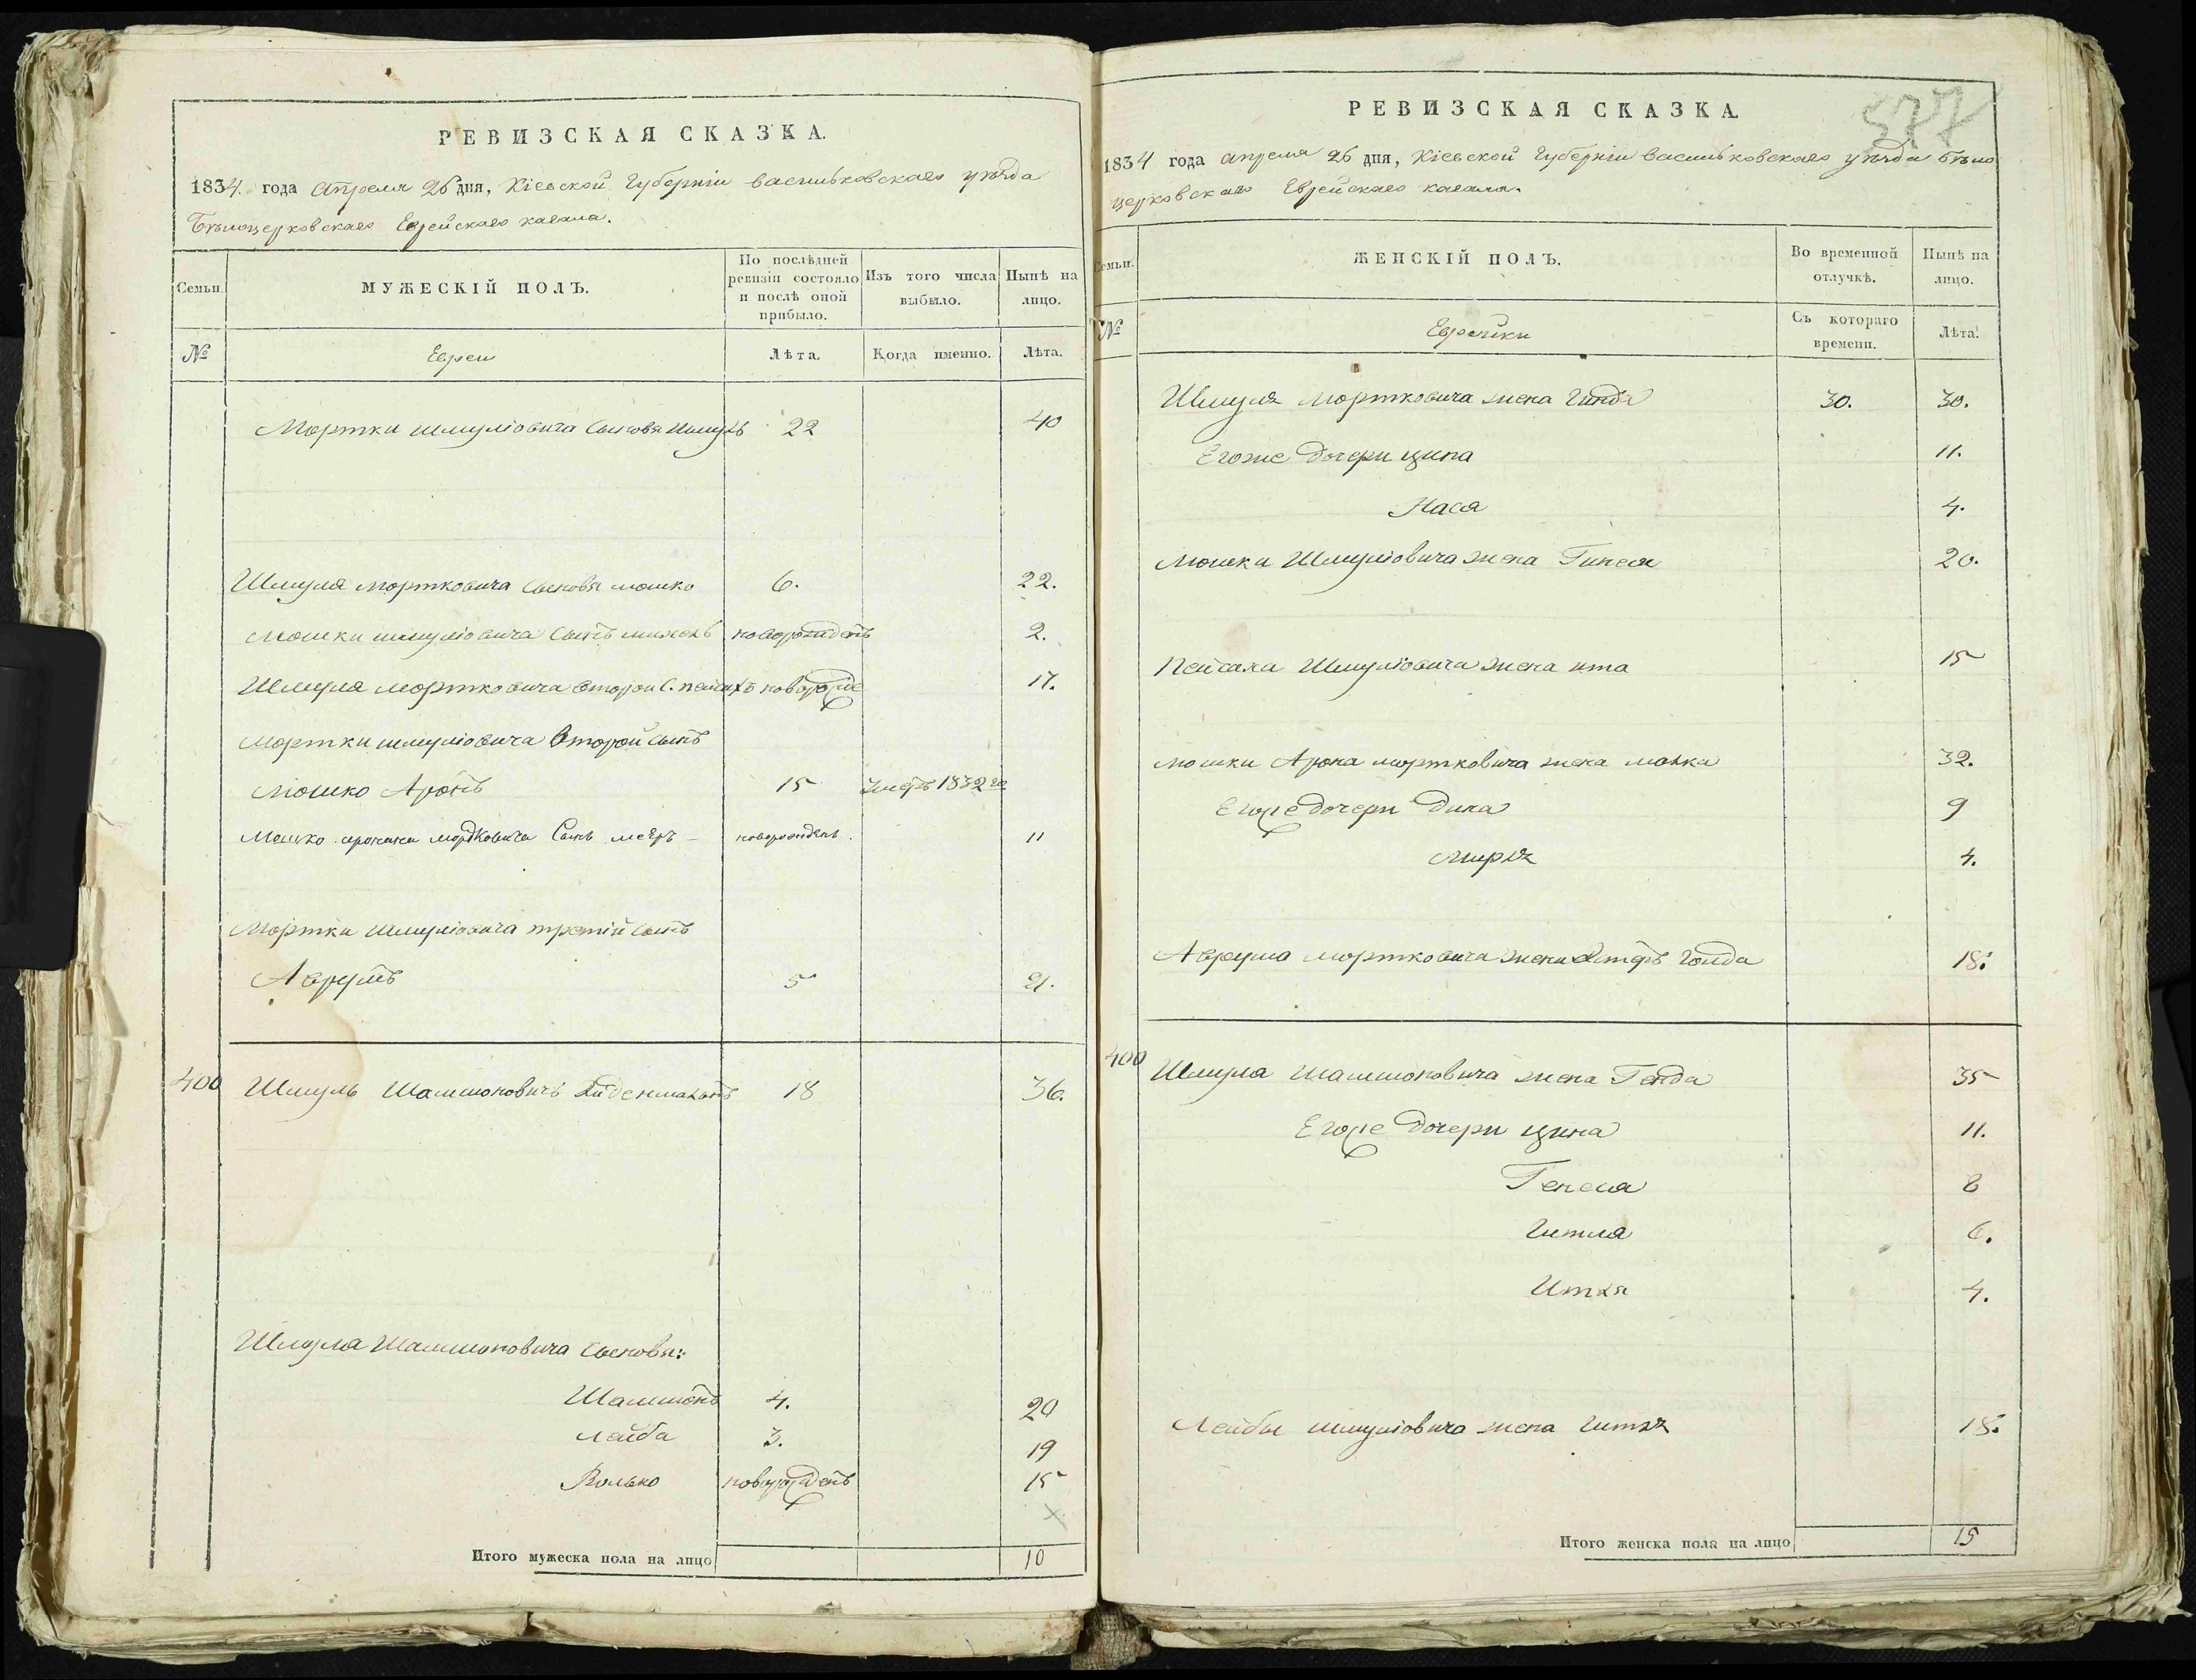 РЕВИЗСКАЯ СКАЗКА.
1834. года Апреля 26 дня, Кіевской Губерніи Васильковскаго уѣзда
Бѣлоцерковскаго Еврейскаго кагала.
Семьи.
МУЖЕСКІЙ ПОЛЪ.
По послѣдней ревизіи состояло и послѣ оной прибыло.
Изъ того числа выбыло.
Нынѣ на лицо.
№
Евреи
Лѣта.
Когда именно.
Лѣта.
Мортки Шмуліовича сыновя Шмуль 22 40
Шмуля Мортковича сыновя Мошко 6. 22.
Мошки Шмуліовича сынъ новорожденъ 2.
Шмуля Мортковича второй С. Пейсахъ новорожде 17.
Мортки Шмуліовича второй сынъ
Мошко Аронъ 15 умеръ 1832 го
Мошко Мордковича Сынъ Мееръ - новорожденъ. 11
Мортки Шмуліовича третій сынъ
Аврумъ 5 21.
400 Шмуль Шамшоновичъ 18 36.
Шмуля Шамшоновича сыновя:
Шамшонъ 4. 20
Лейба 3. 19
Волько новорожденъ 15
Х
Итого мужеска пола на лицо 10
РЕВИЗСКАЯ СКАЗКА
577
1834 года Апреля 26 дня, Кіевской Губерніи Васильковскаго уѣзда Бѣло
церковскаго Еврейскаго кагала.
Семьи.
ЖЕНСКІЙ ПОЛЪ.
Во временной отлучкѣ.
Нынѣ на лицо.
№
Еврейки
Съ котораго времени.
Лѣта.
Шмуля Мортковича жена 30. 30.
Егоже дочери Ципа 11.
Хася 4.
Мошка Шмуліовича жена Гинеся 20.
Пейсаха Шмуліовича жена Ита 15
Мошки Арона Мортковича жена Малка 32.
Егоже дочери Дина 9
4.
Аврума Мортковича жена Голда 18.
400 Шмуля Шамшоновича жена Генда 35
Егоже дочери Цина 11.
Генеся 8
Гитля 6.
Итля 4.
Лейбы Шмуліовича жена 18.
Итого женска пола на лицо 15